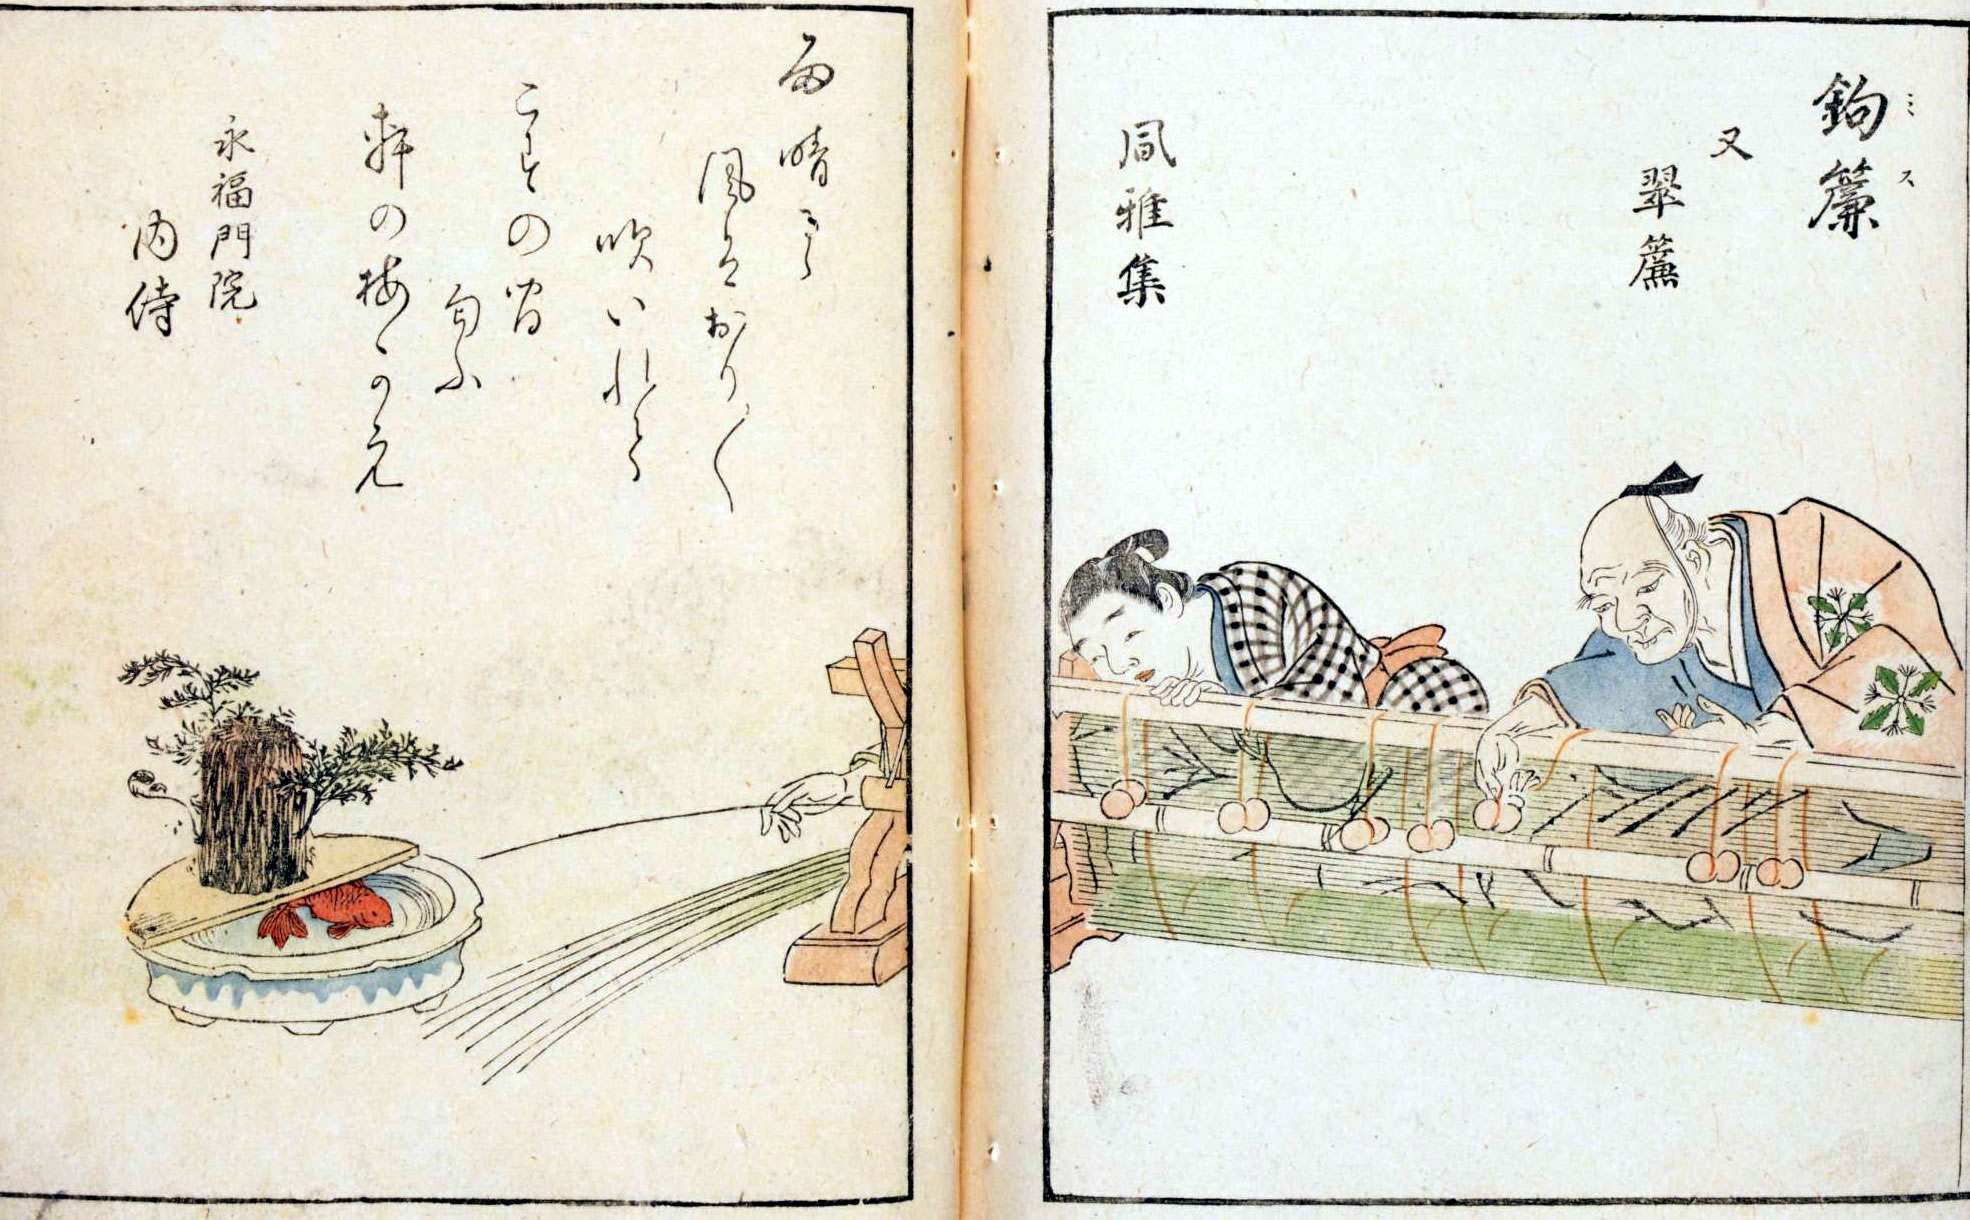 鉤簾
ミス
又
翠簾
風雅集
雨晴るゝ
風はおり〱
吹いれて
こすの間
匂ふ
軒の梅かえ
永福門院
内侍